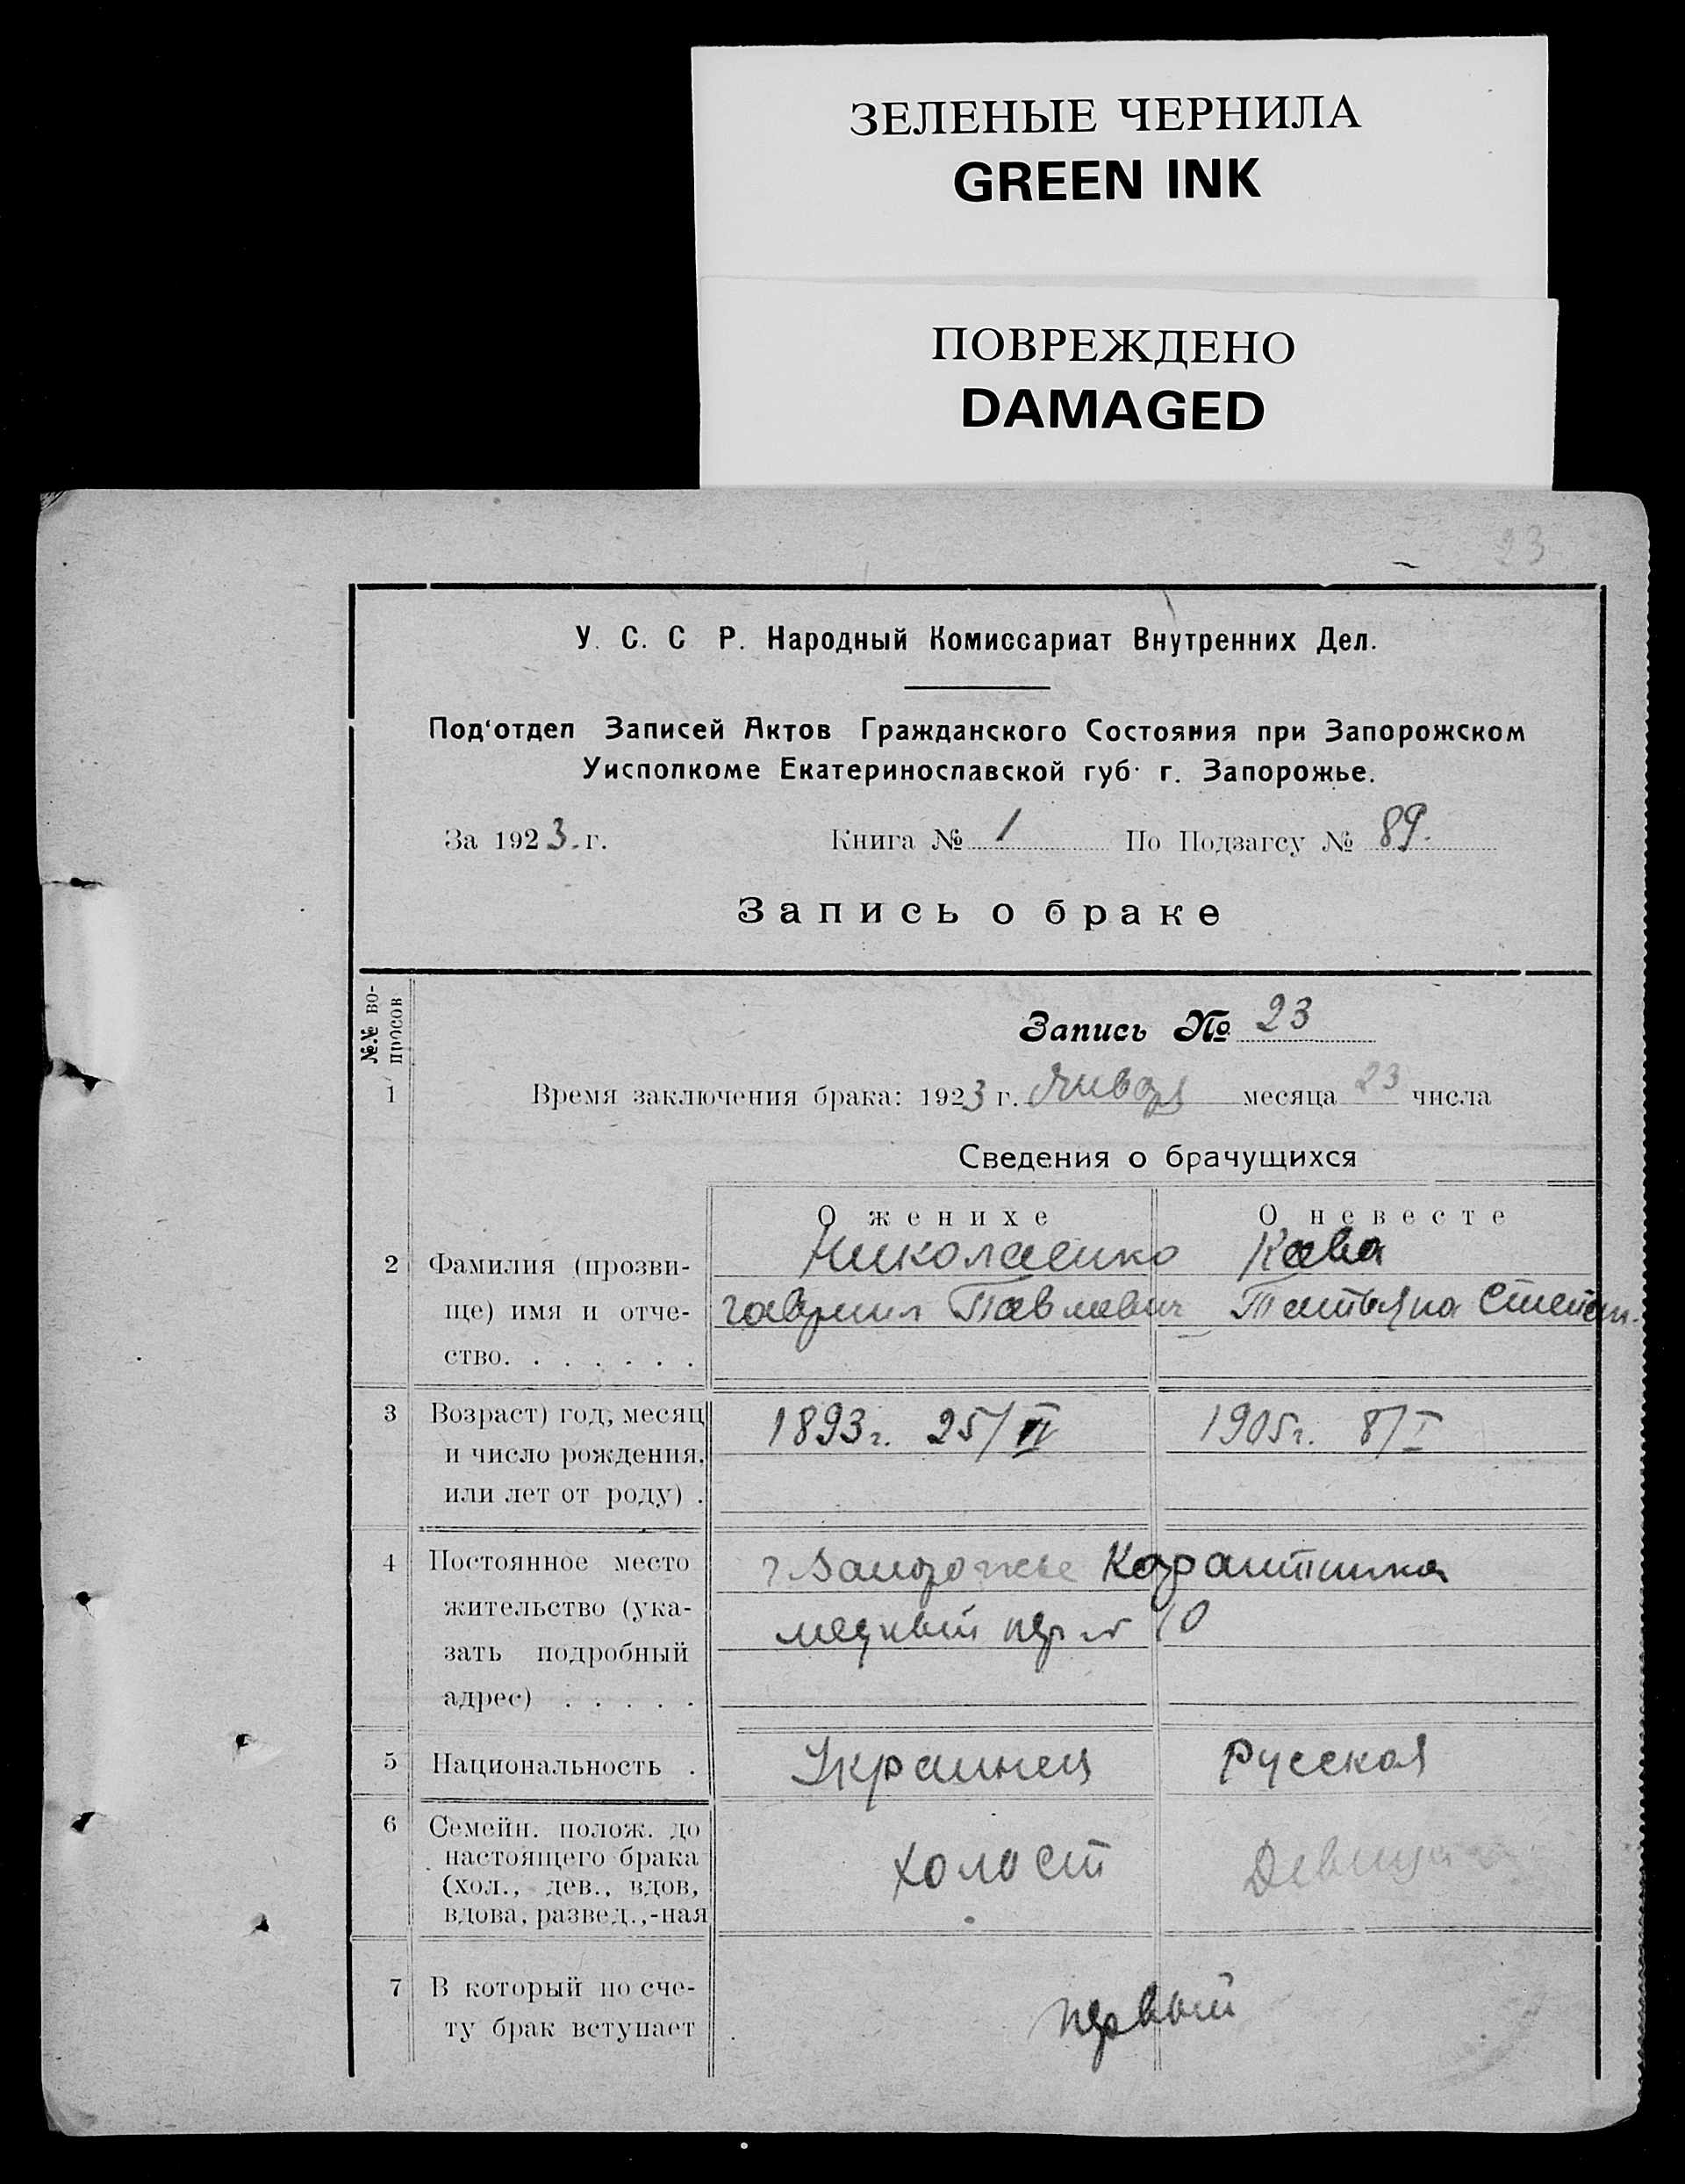 ЗЕЛЕНЫЕ ЧЕРНИЛА
GREEN INK
ПОВРЕЖДЕНО
DAMAGED
23
У. С. С Р. Народный Комиссариат Внутренних Дел.
Под‘отдел Записей Актов Гражданского Состояния при Запорожском
Уисполкоме Екатеринославской губ. г. Запорожье.
За 1923. г. Книга № 1 По Подзагсу № 89.
Запись о браке
№.№ во-
просов
Запись № 23
1 Время заключения брака: 1923 г. Январ месяца 23 числа
Сведения о брачущихся
О женихе О невесте
2 Фамилия (прозви- Николаенко Кава
ще) имя и отче- Гавриил Павлович Татьяна Степан.
ство. . . . . . .
3 Возраст) год, месяц 1893г. 25/VI 1905г. 8/I
и число рождения,
или лет от роду) .
4 Постоянное место г Запорожье Карантинка
жительство (ука- медный пер № 10
зать подробный
адрес) . . . . .
5 Национальность . Украинец Русская
6 Семейн. полож. до
настоящего брака холост Девица
(хол., дев., вдов,
вдова, развед.,-ная
7 В который по сче- первый
ту брак вступает